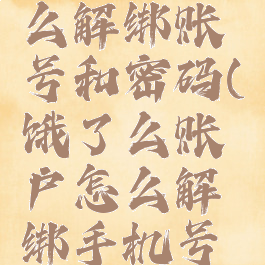 么解绑账
号和密码(
饿了么账
户怎么解
绑手机号